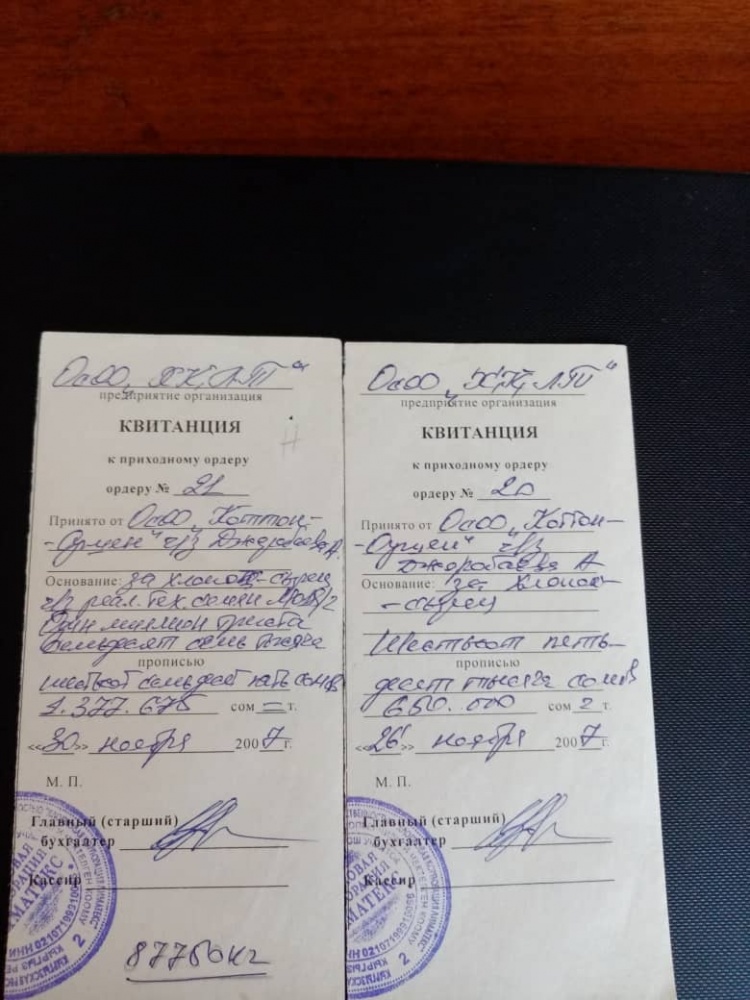 ОсОО „ХК, ЛТ“
предприятие организация
КВИТАНЦИЯ
к приходному ордеру
ордеру № 21
Принято от ОсОО „Коттон-
ч/з Джоробаева А.
Основание: за хлопок-сырец
ч/з реал. тех. семян
Один миллион триста
семьдесят семь тысяча
прописью
шестьсот семьдесят пять сомов
1.377.675 сом = т.
«30» ноября 2007 г.
М. П.
Главный (старший)
бухгалтер
Кассир
87750 кг
ОсОО „ХК, ЛТ“
предприятие организация
КВИТАНЦИЯ
к приходному ордеру
ордеру № 20
Принято от ОсОО „Коттон-
ч/з
Джоробаева А
Основание: за хлопок-
-сырец
Шестьсот пять-
прописью
десят тысяча сомов
650.000 сом = т.
«26» ноября 2007 г.
М. П.
Главный (старший)
бухгалтер
Кассир